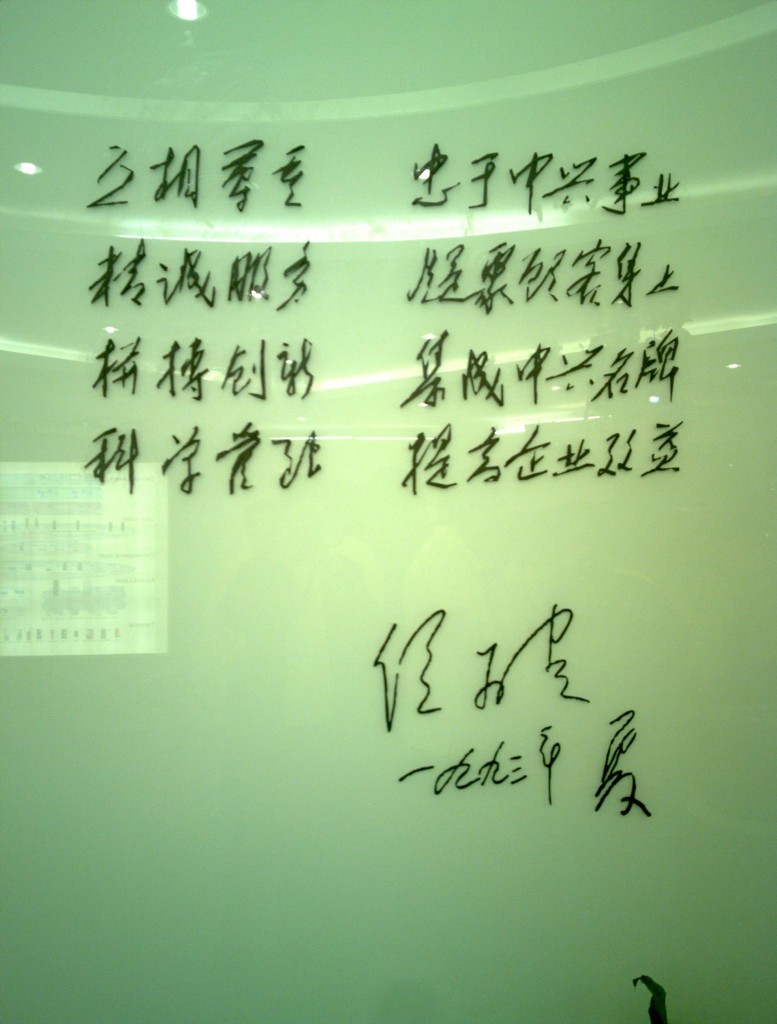 互相尊重 忠于中兴事业
精诚服务 凝聚顾客身上
拼搏创新 集成中兴名牌
科学管理 提高企业效益
侯为贵
一九九三年 夏